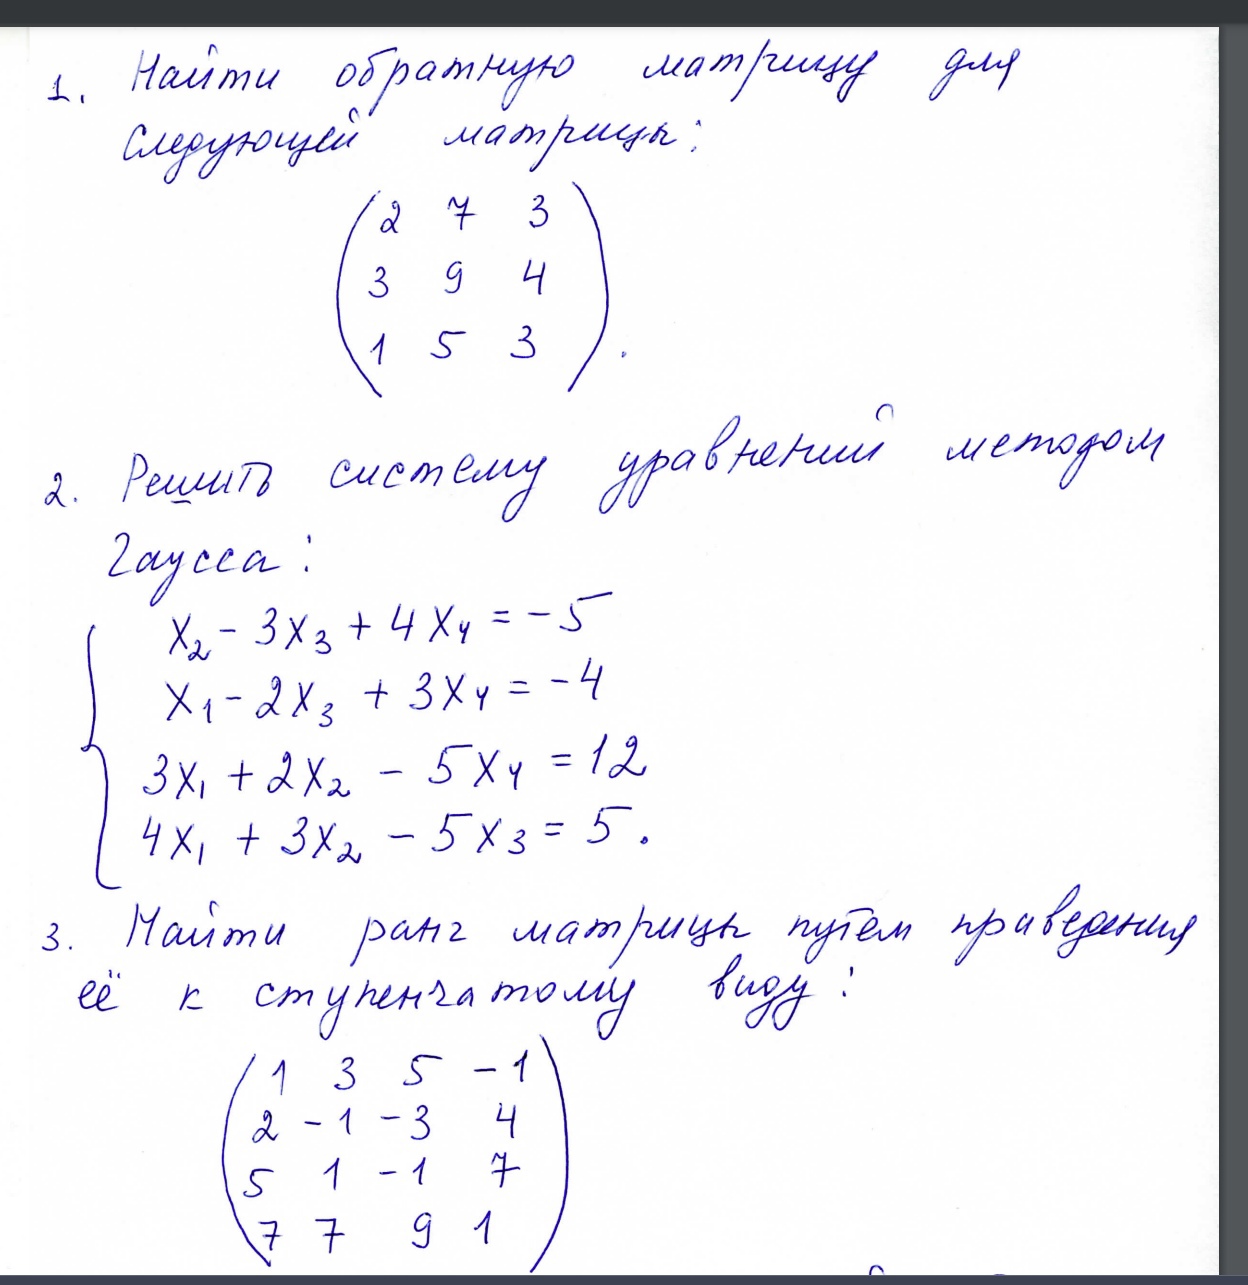 1. Найти обратную матрицу для
следующей матрицы:
2 7 3
3 9 4
1 5 3 .
2. Решить систему уравнений методом
Гаусса:
x₂ - 3x₃ + 4x₄ = -5
x₁ - 2x₃ + 3x₄ = -4
3x₁ + 2x₂ - 5x₄ = 12
4x₁ + 3x₂ - 5x₃ = 5.
3. Найти ранг матрицы путём приведения
её к ступенчатому виду:
1 3 5 -1
2 -1 -3 4
5 1 -1 7
7 7 9 1